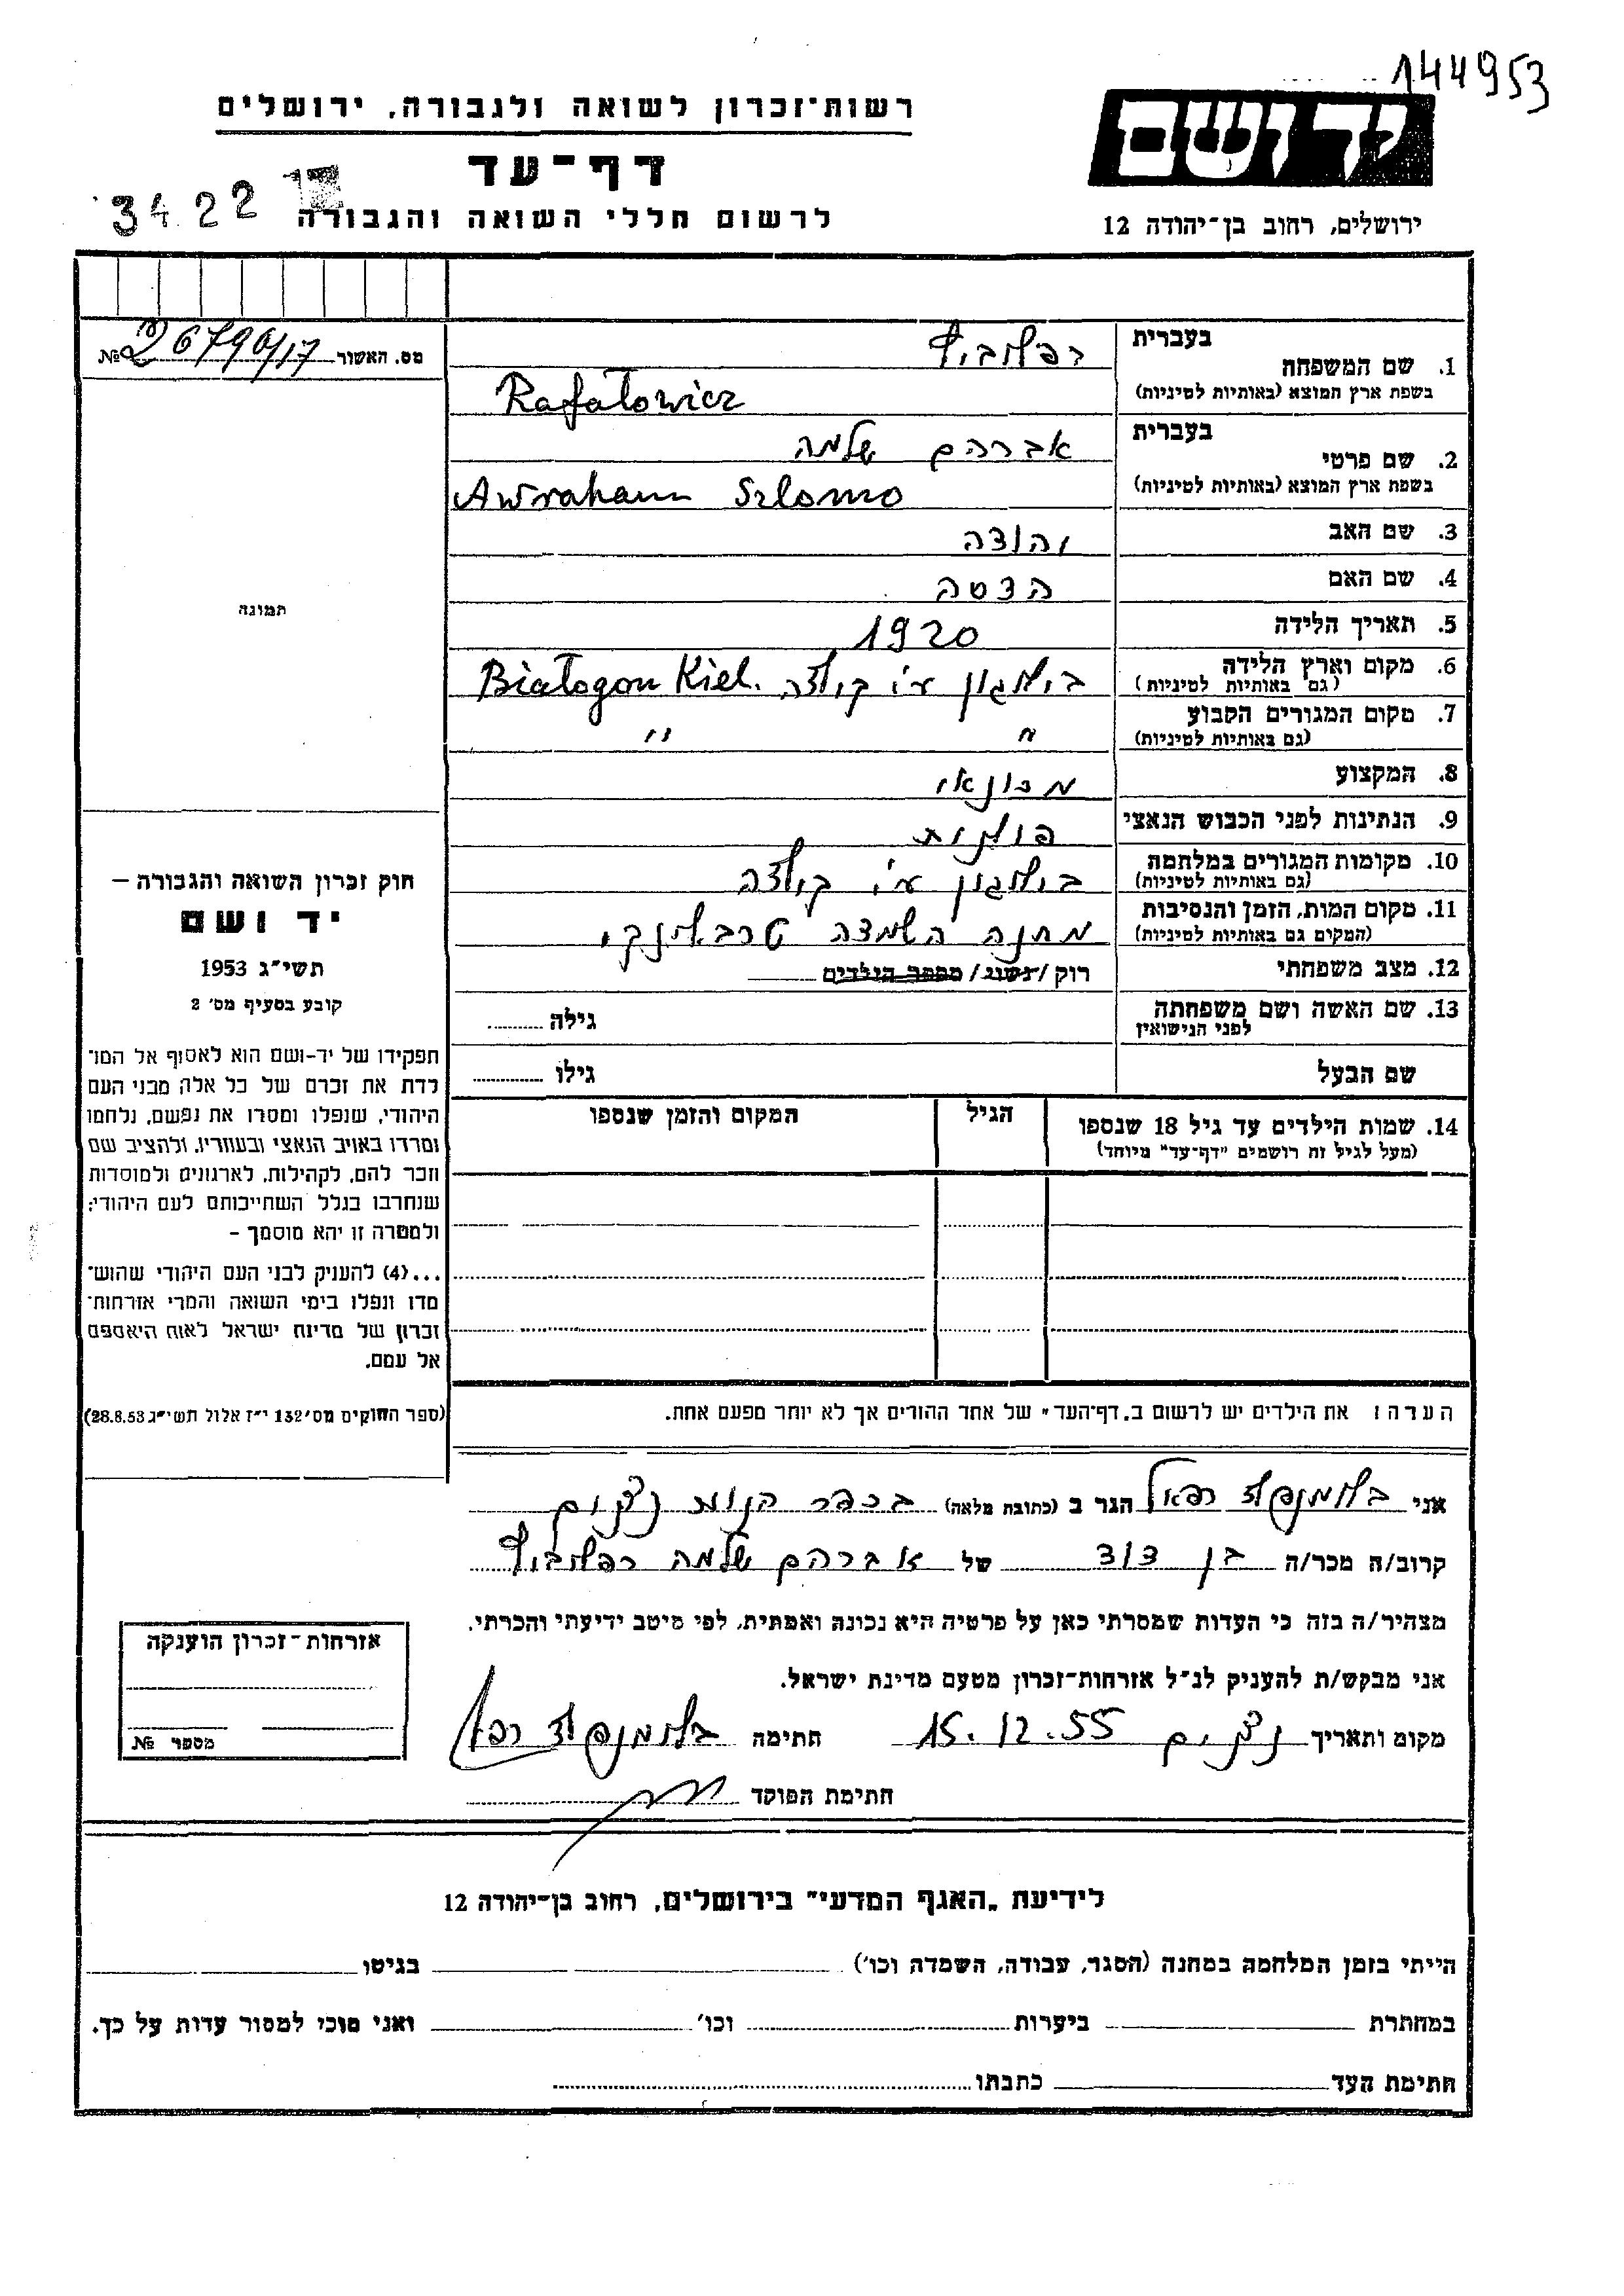 144953
רשות־זכרון לשואה ולגבורה, ירושלים
יד ושם
דף־עד
3422 17
לרשום חללי השואה והגבורה
ירושלים, רחוב בן־יהודה 12
מס. האשור № 26790/17
בעברית
1. שם המשפחה
בשפת ארץ המוצא (באותיות לטיניות)
רפלוביץ
Rafałowicz
בעברית
2. שם פרטי
בשפת ארץ המוצא (באותיות לטיניות)
אברהם שלמה
Awraham Szlomo
3. שם האב יהודה
4. שם האם הדסה
5. תאריך הלידה 1920
6. מקום וארץ הלידה
(גם באותיות לטיניות)
ביאלגון ע"י קילצה Białogon Kiel.
7. מקום המגורים הקבוע
(גם באותיות לטיניות)
" "
8. המקצוע מכונאי
9. הנתינות לפני הכבוש הנאצי פולנית
10. מקומות המגורים במלחמה
(גם באותיות לטיניות)
ביאלגון ע"י קילצה
11. מקום המות, הזמן והנסיבות
(המקום גם באותיות לטיניות)
מחנה השמדה טרבלינקי
12. מצב משפחתי רוק/נשוי/מספר הילדים
13. שם האשה ושם משפחתה
לפני הנישואין
גילה
שם הבעל גילו
14. שמות הילדים עד גיל 18 שנספו
(מעל לגיל זה רושמים "דף־עד" מיוחד)
הגיל
המקום והזמן שנספו
תמונה
חוק זכרון השואה והגבורה –
יד ושם
תשי"ג 1953
קובע בסעיף מס' 2
תפקידו של יד-ושם הוא לאסוף אל המו־
לדת את זכרם של כל אלה מבני העם
היהודי, שנפלו ומסרו את נפשם, נלחמו
ומרדו באויב הנאצי ובעוזריו, ולהציב שם
וזכר להם, לקהילות, לארגונים ולמוסדות
שנחרבו בגלל השתייכותם לעם היהודי;
ולמטרה זו יהא מוסמך –
...(4) להעניק לבני העם היהודי שהוש־
מדו ונפלו בימי השואה והמרי אזרחות־
זכרון של מדינת ישראל לאות היאספם
אל עמם.
(ספר החוקים מס' 132 י"ז אלול תשי"ג 28.8.53)
הערה: את הילדים יש לרשום ב„דף־העד" של אחד ההורים אך לא יותר מפעם אחת.
אני בלומנפלד רפאל הגר ב (כתובת מלאה) בכפר הנוער ניצנים
קרוב/ה מכר/ה בן דוד של אברהם שלמה רפלוביץ
מצהיר/ה בזה כי העדות שמסרתי כאן על פרטיה היא נכונה ואמתית, לפי מיטב ידיעתי והכרתי.
אני מבקש/ת להעניק לנ"ל אזרחות־זכרון מטעם מדינת ישראל.
מקום ותאריך ניצנים 15.12.55 חתימה בלומנפלד רפאל
חתימת הפוקד
אזרחות־זכרון הוענקה
מספר №
לידיעת „האגף המדעי" בירושלים, רחוב בן־יהודה 12
הייתי בזמן המלחמה במחנה (הסגר, עבודה, השמדה וכו') בגיטו
במחתרת ביערות וכו' ואני מוכן למסור עדות על כך.
חתימת העד כתבתו